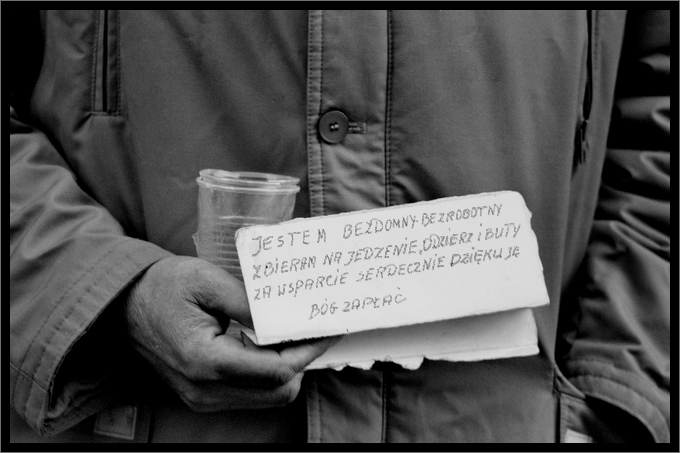 JESTEM BEZDOMNY-BEZROBOTNY
ZBIERAM NA JEDZENIE, ODZIERZ i BUTY
ZA WSPARCIE SERDECZNIE DZIĘKUJĘ
BÓG ZAPŁAĆ